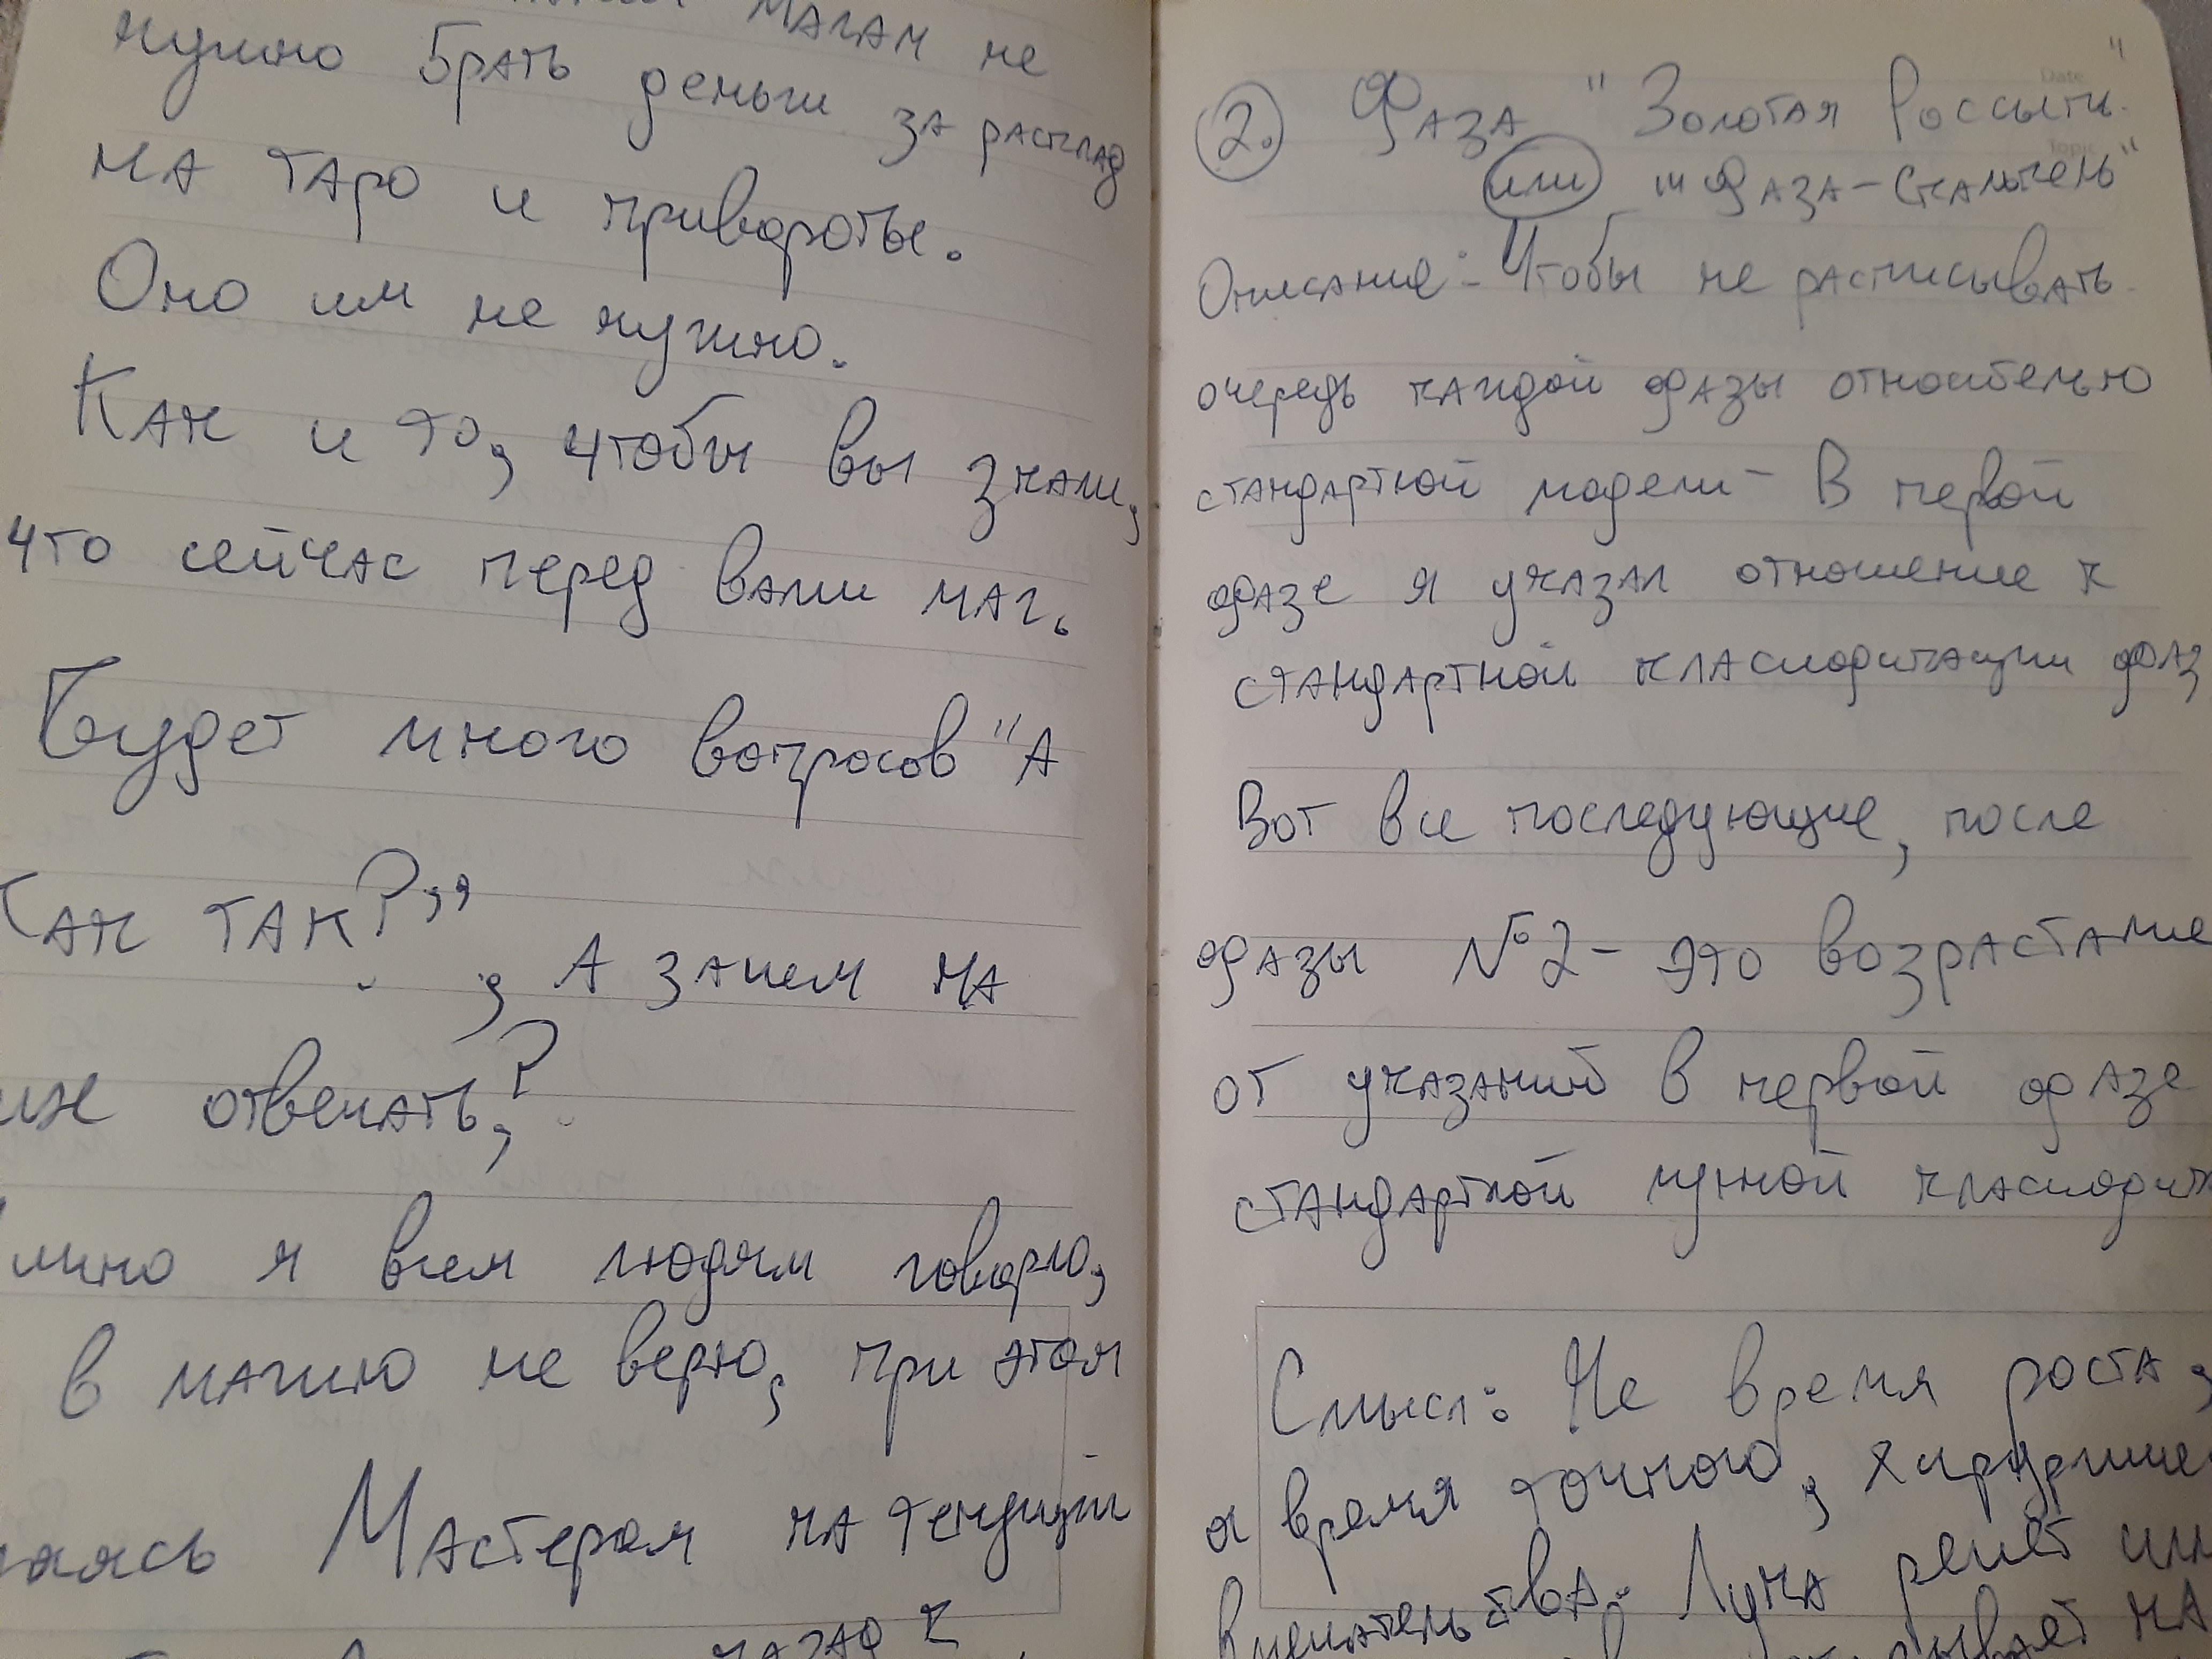 Магам не
нужно брать деньги за расклад
на таро и привороты.
Оно им не нужно.
Как и то, чтобы вы знали,
что сейчас перед вами маг.
Будет много вопросов "А
Как так?", А зачем на
них отвечать,?
я всем людям говорю,
в магию не верю, при этом
Мастером на текущий
2. Фаза "Золотая Россыпь"
или "Фаза-Скальпель"
Описание: Чтобы не расписывать
очередь каждой фазы относительно
стандартной модели - В первой
фазе я указал отношение к
стандартной класификации фаз
Вот все последующие, после
фазы №2 - это возрастание
от указаний в первой фазе
стандартной лунной
Смысл: Не время роста,
а время точного,
вмешательства. Луна режет или
на